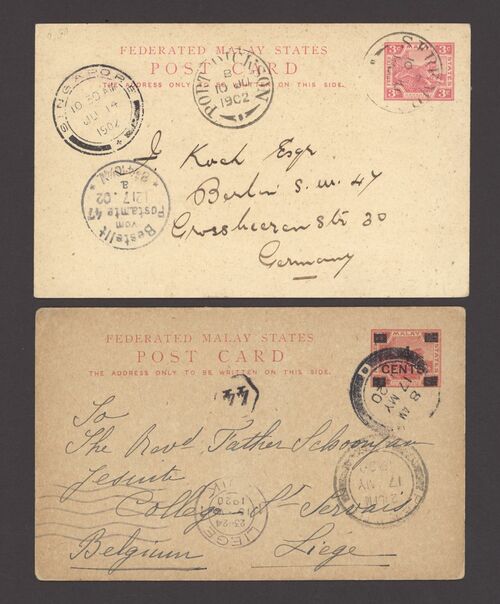 FEDERATED MALAY STATES
POST CARD
THE ADDRESS ONLY TO BE WRITTEN ON THIS SIDE.
3c 3c
STATES
SINGAPORE
10 30 AM
JU 14
1902
PORT DICKSON
B
10 JU
1902
Bestellt
vom
Postamte 47
12/7 02
J. Koch Esqr
Berlin S.W. 47
Grossbeeren Str 30
Germany
FEDERATED MALAY STATES
POST CARD
THE ADDRESS ONLY TO BE WRITTEN ON THIS SIDE.
MALAY
STATES
4
CENTS
8 AM
17 MY
20
17 MY
44
To
The Revd Father Schoonjan
Jesuite
College St Servais
Belgium Liége
LIEGE
23-24
1920